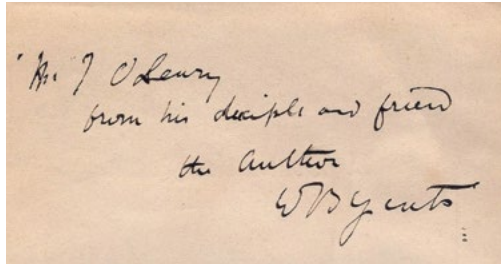 Mr J O'Leary
from his disciple and friend
the author
W B Yeats